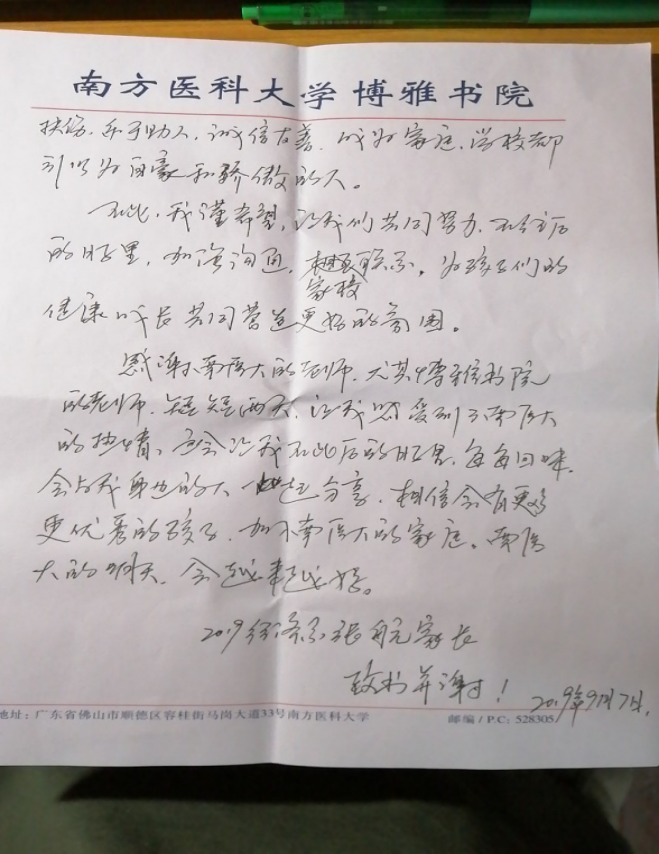 南方医科大学博雅书院
扶伤、乐于助人、诚信友善、成为家庭、学校都
引以为自豪和骄傲的人。
在此，我谨希望，让我们共同努力，在今后
的日子里，加强沟通，联系，为孩子们的
家校
健康成长共同营造更好的氛围。
感谢南医大的老师，尤其博雅书院
的老师，短短两天，让我感受到了南医大
的热情，会让我在此后的日子里，每每回味，
会与我身边的人一起分享，相信会有更多
更优秀的孩子，加入南医大的家庭。南医
大的明天，会越来越好。
2019经济系张航家长
致礼并谢！ 2019年9月7日.
地址：广东省佛山市顺德区容桂街马岗大道33号南方医科大学 邮编/P.C: 528305